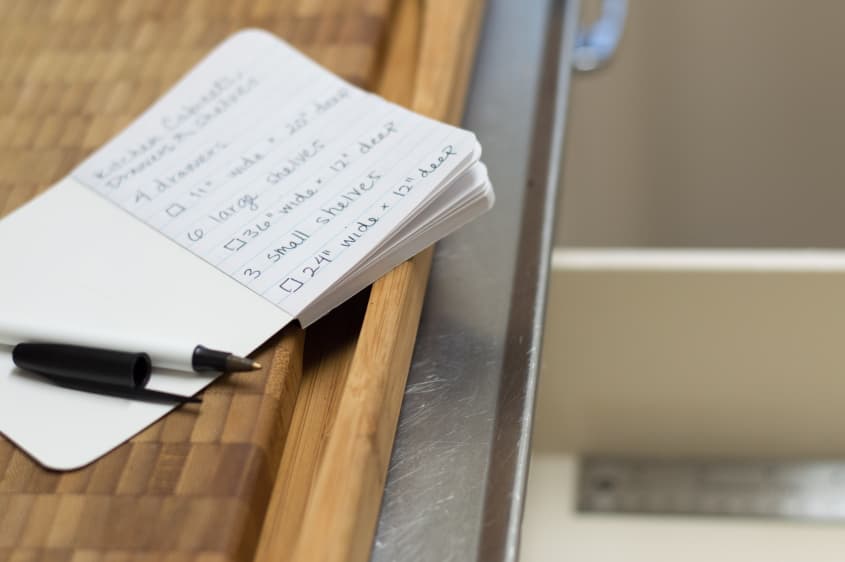 Kitchen Cabinets,
Drawers & Shelves
4 drawers
☐ 11" wide × 20" deep
6 large shelves
☐ 36" wide × 12" deep
3 small shelves
☐ 24" wide × 12" deep